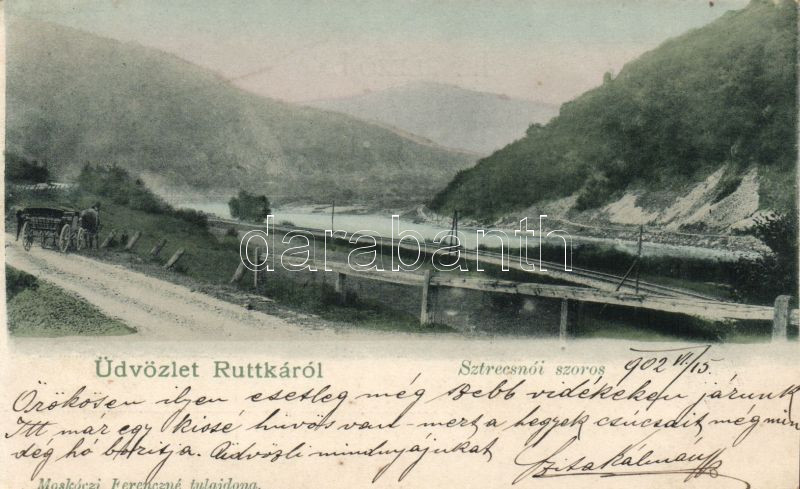 darabanth
Üdvözlet Ruttkáról
Sztrecsnói szoros 902 VI/15
Örökösen ilyen esetleg még szebb vidékeken járunk
Itt mar egy kissé hüvös van - mert a hegyek csúcsait még min
dég hó boritja. Üdvözli mindnyájukat
Szita Kálmán
Moskóczi Ferenczné tulajdona.